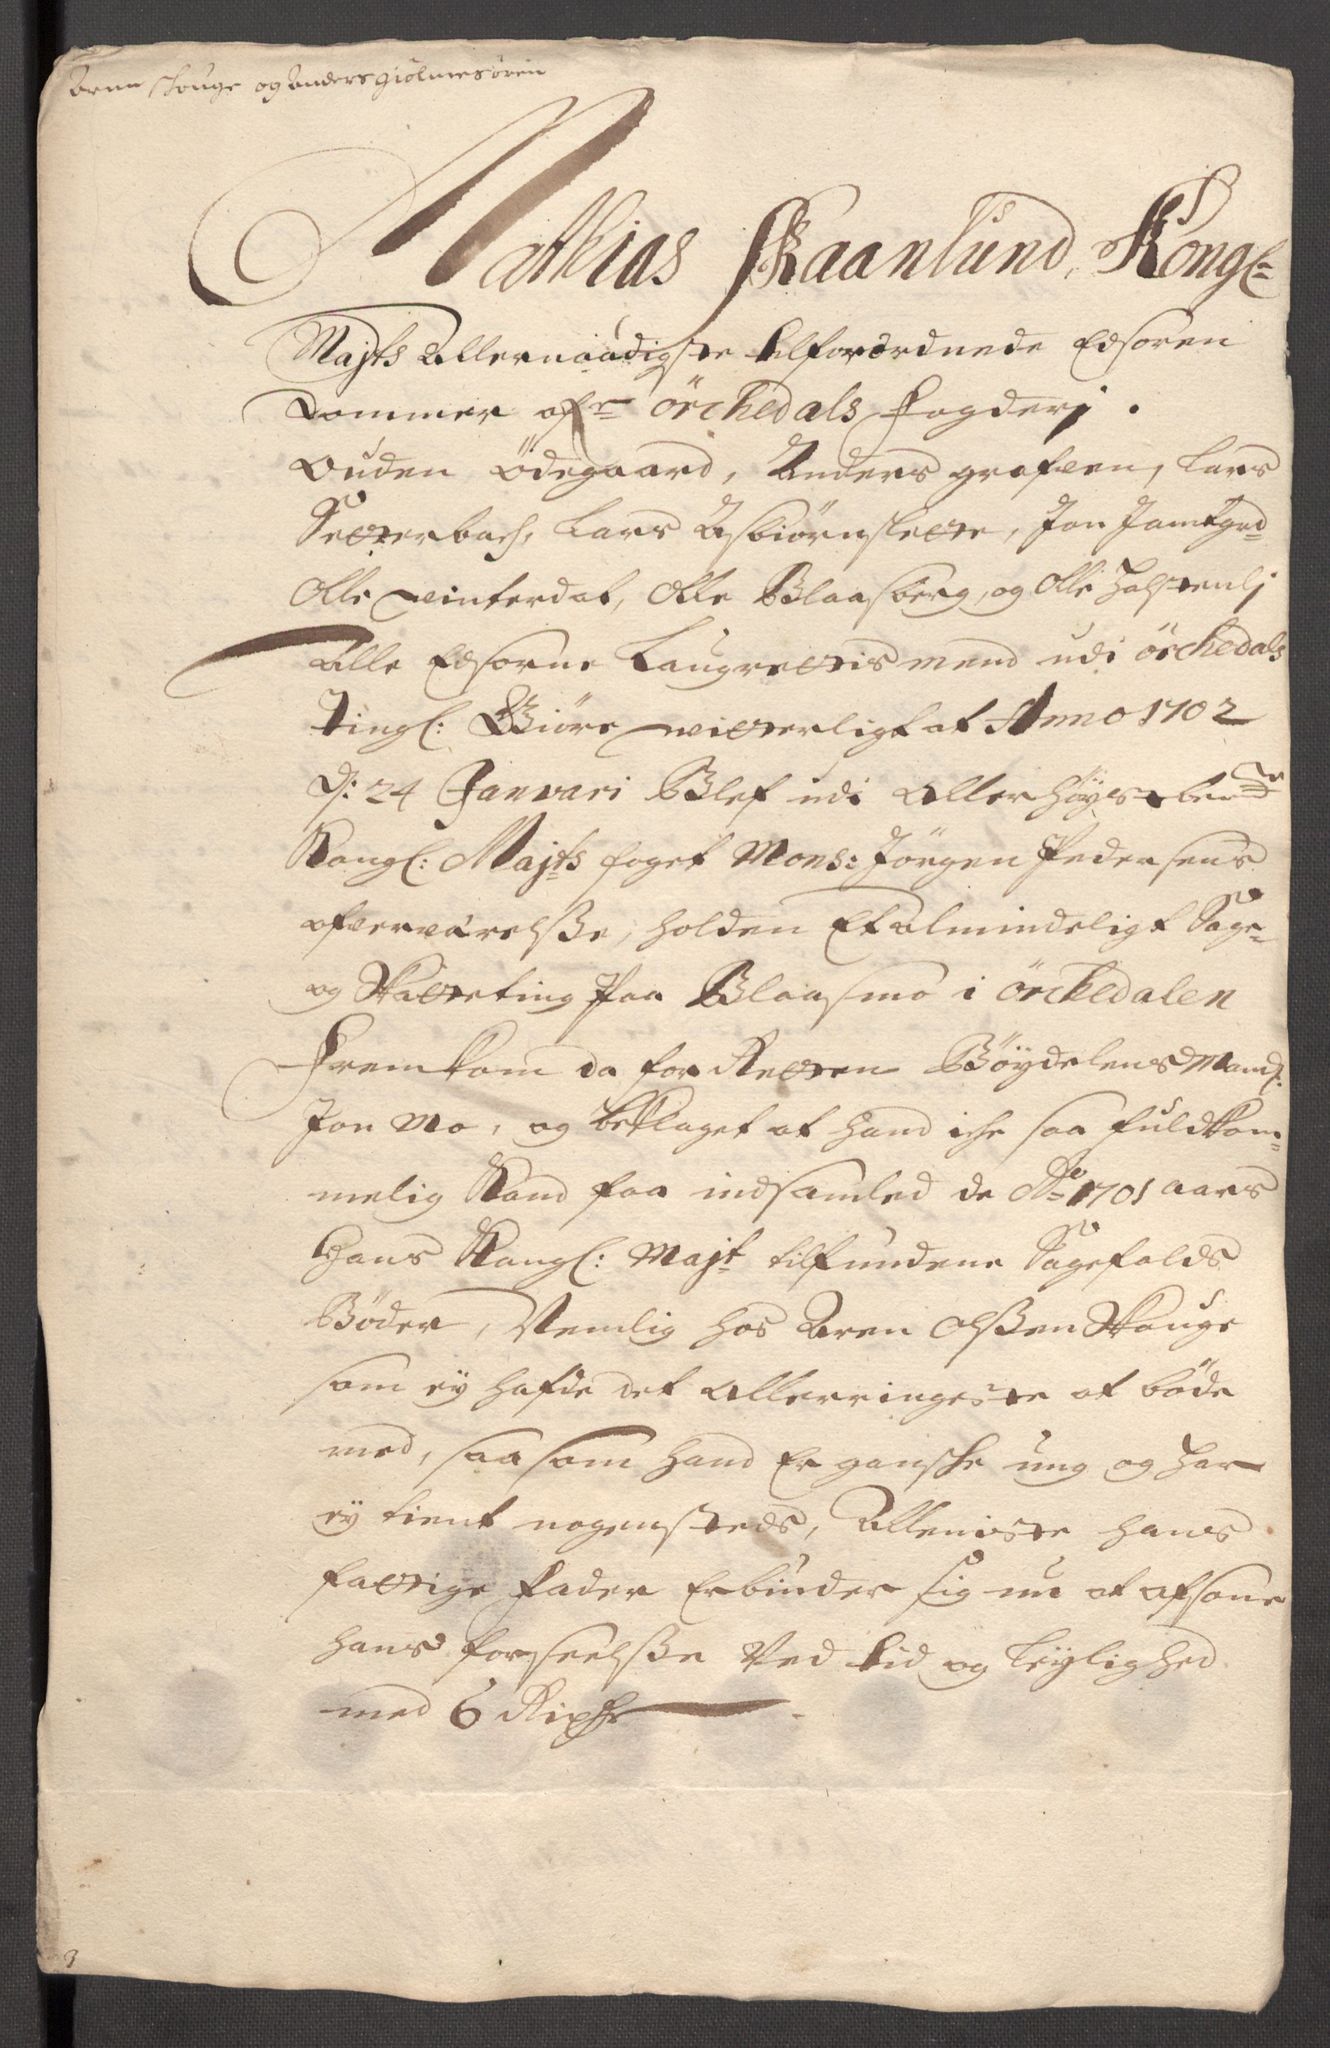 Aren schouge og Anders giölmesören
Mathias Skaanlund, Kongl:
Maÿts Allernaadigste tilforordnede Edsoren
Dommer ofr Örchedals Fogderj.
Ouden Ödegaard, Anders grofven, Lars
Setterbach, Lars Asbiörnslette, Jon Jamtgrd
Olle vinterdal, Olle Blaasberg, og Olle Holstenlj
Alle Edsorne Laugrettis mend udi örchedals
Tingl: Giöre vitterligt at Anno 1702
d: 24 Januari Blef udi Allerhöÿstbente
Kongl: Maÿts foget Mons: Jörgen Pedersens
ofverværelsße, holden Et almindeligt Sage-
og Skatteting paa Blaasmo i örckedalen
Fremkom da for Retten Böÿdelens Mand:
Jon Mo, og beklaget at hand iche saa fuldkom-
melig Kand faa indsamled de Ao 1701 aars
Hans Kongl: Maÿt tilfundene Sagefalds
Böder, Nemlig hos Aren Olsßen Skouge
som eÿ hafde det Allerringeste at böde
med, saasom hand Er gansche ung og har
eÿ tient nogensteds, Alleniste hans
fattige Fader Erbiuder sig nu at afsone
hans forseelsße Ved tid og leÿlighed
med 6 Rixdr
3